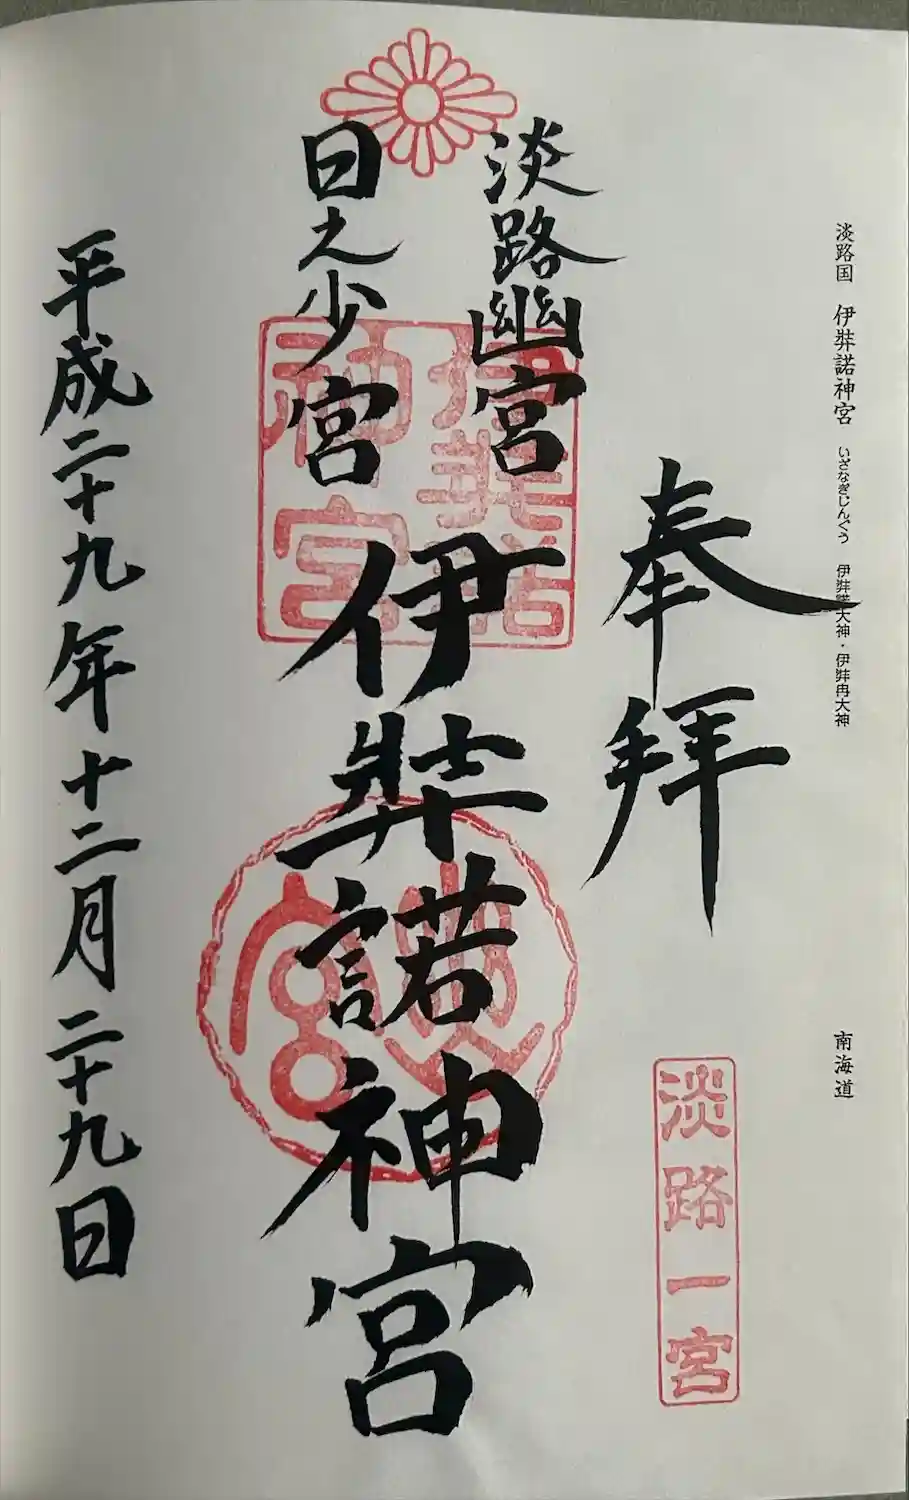 淡路国 伊弉諾神宮 いざなぎじんぐう 伊弉諾大神・伊弉冉大神 南海道
奉拝
淡路一宮
淡路幽宮
日之少宮
伊弉諾神宮
伊弉諾
神宮
幽
宮
平成二十九年十二月二十九日